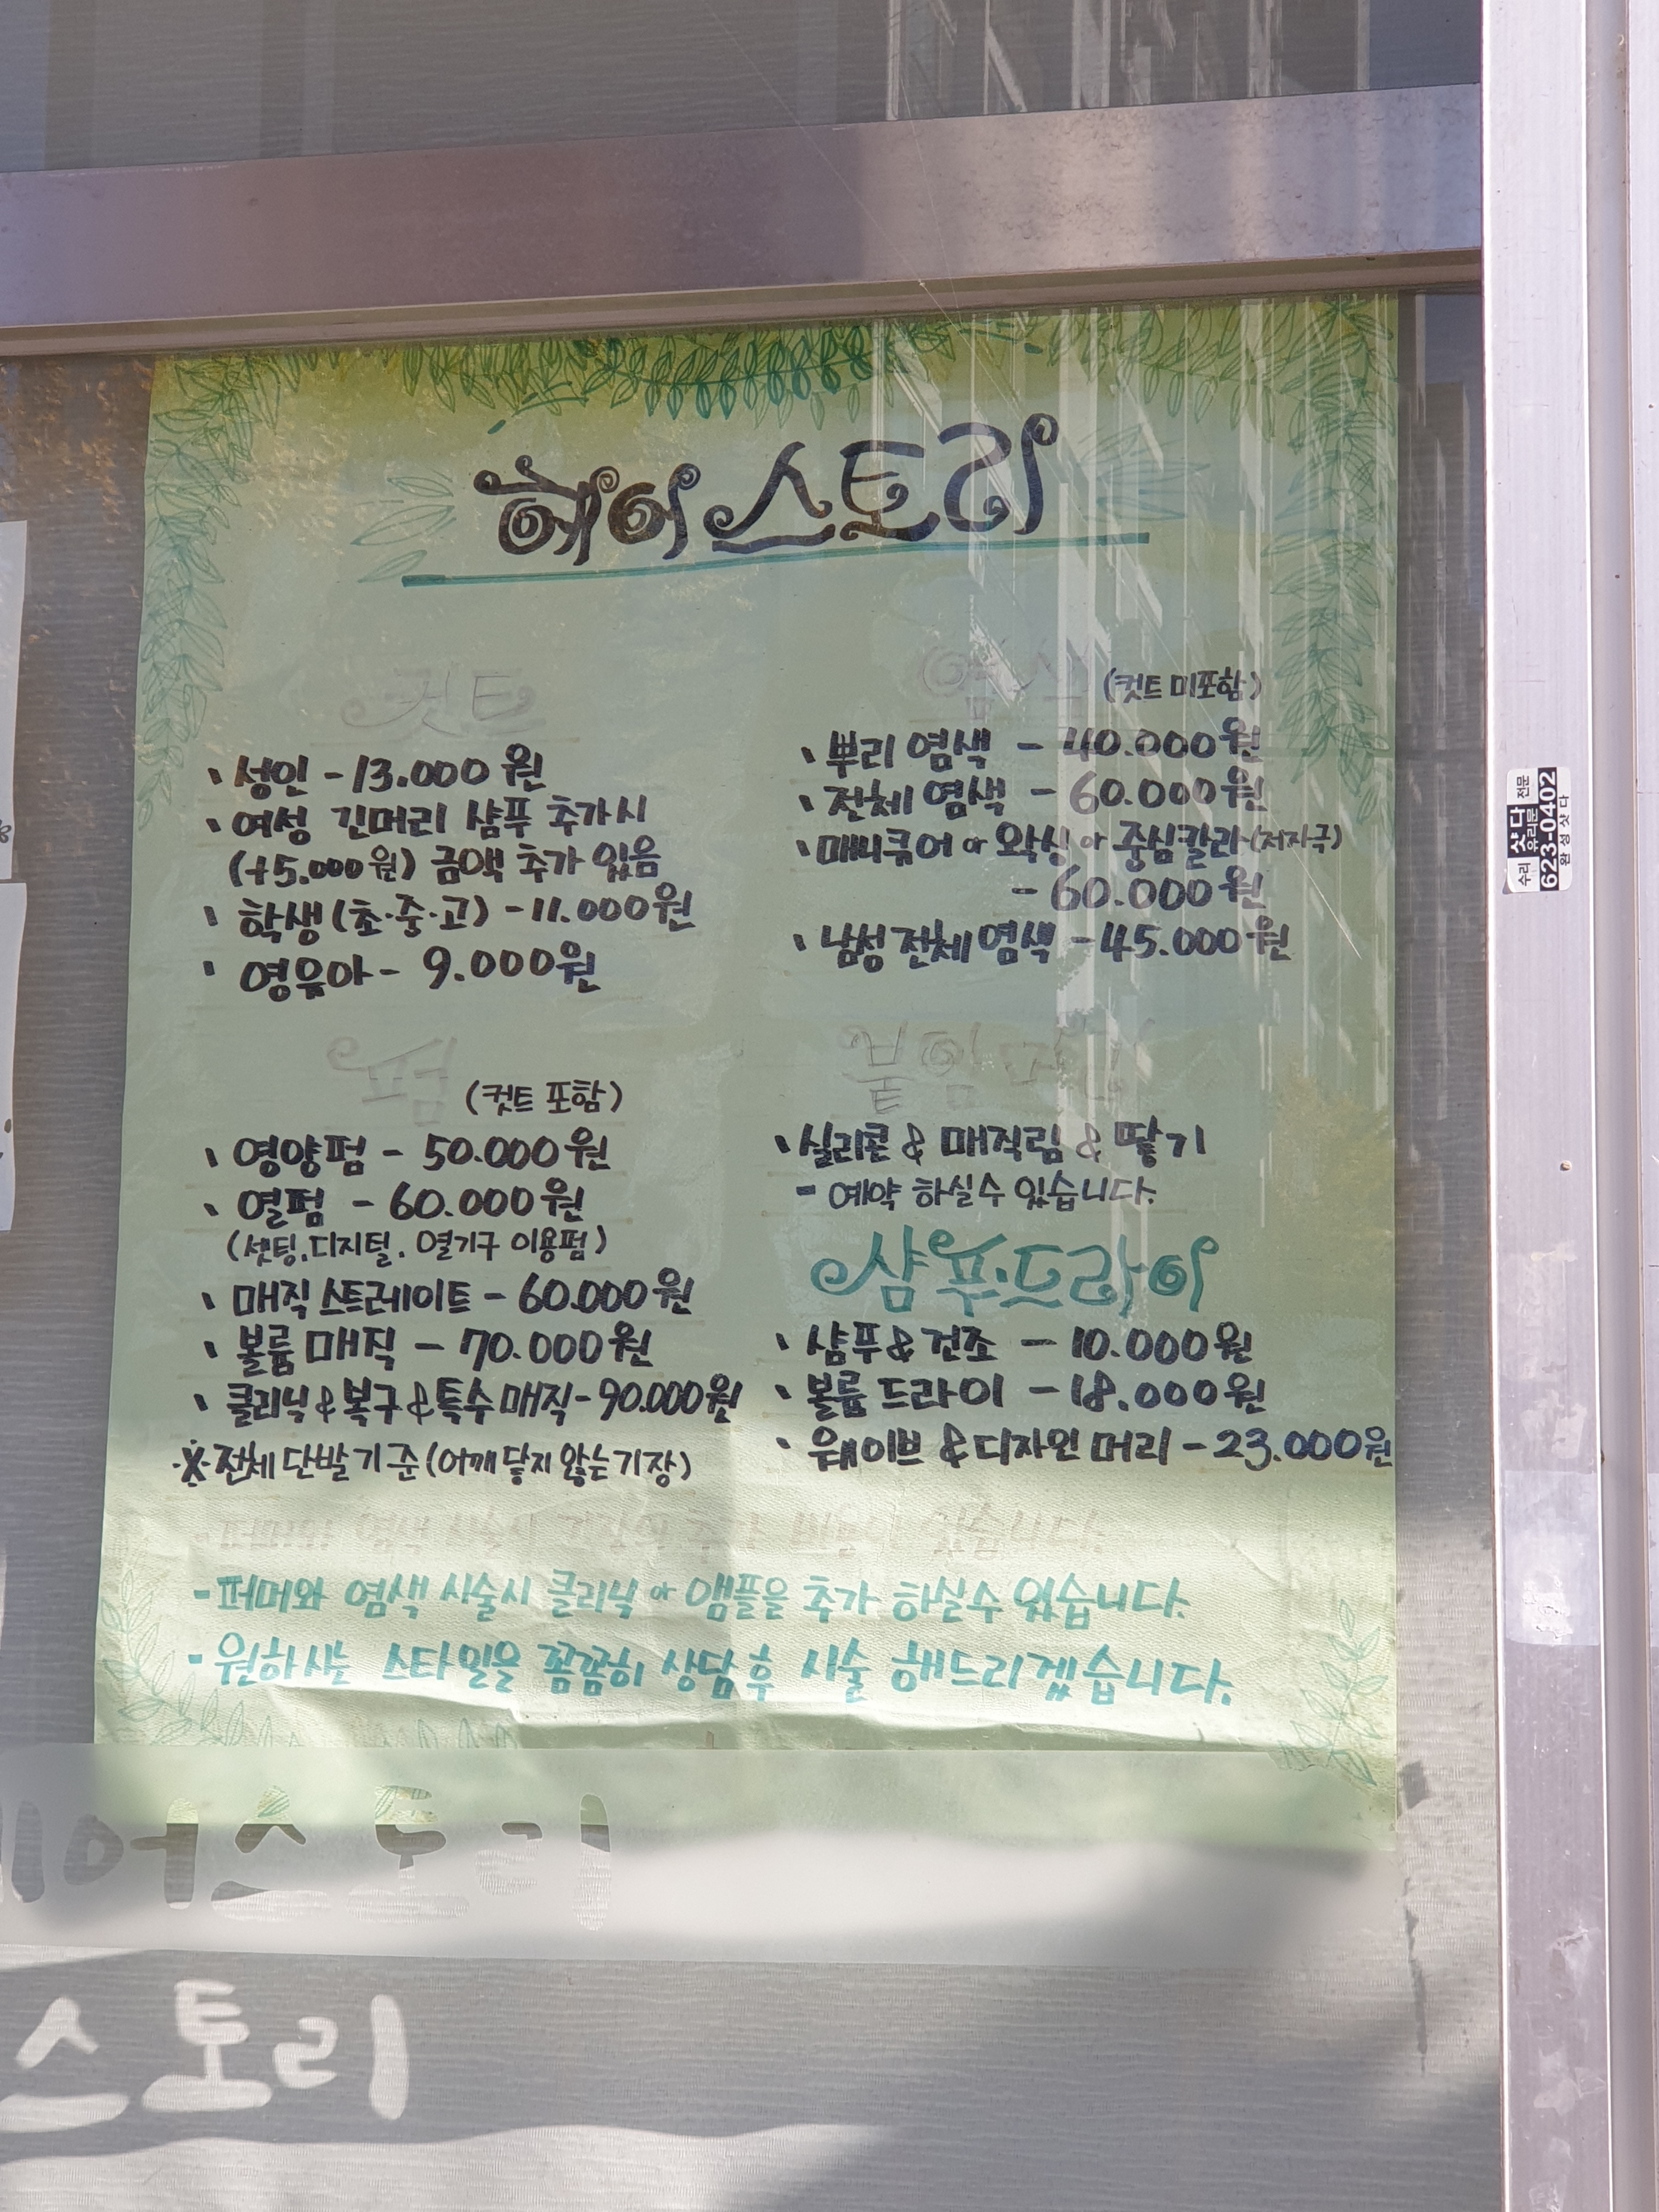 헤어스토리
컷트
· 성인 - 13.000원
· 여성 긴머리 샴푸 추가시
(+5.000원) 금액 추가 있음
· 학생(초·중·고) - 11.000원
· 영유아 - 9.000원
펌 (컷트 포함)
· 영양펌 - 50.000원
· 열펌 - 60.000원
(셋팅, 디지털, 열기구 이용펌)
· 매직 스트레이트 - 60.000원
· 볼륨 매직 - 70.000원
· 클리닉 & 복구 & 특수 매직 - 90.000원
※ 전체 단발기준 (어깨 닿지 않는 기장)
염색 (컷트 미포함)
· 뿌리 염색 - 40.000원
· 전체 염색 - 60.000원
· 매니큐어 or 왁싱 or 중심칼라 (저자극)
- 60.000원
· 남성 전체 염색 - 45.000원
붙임머리
· 실리콘 & 매직림 & 땋기
- 예약 하실수 있습니다.
샴푸·드라이
· 샴푸 & 건조 - 10.000원
· 볼륨 드라이 - 18.000원
· 웨이브 & 디자인 머리 - 23.000원
- 퍼머와 염색 시술시 클리닉 or 앰플을 추가 하실수 있습니다.
- 원하시는 스타일을 꼼꼼히 상담 후 시술 해드리겠습니다.
어스토리
스토리
수리 샷다 유리문 전문
623-0402
완성샷다